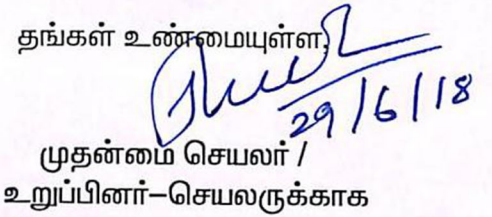 தங்கள் உண்மையுள்ள,
29/6/18
முதன்மை செயலர் /
உறுப்பினர்–செயலருக்காக